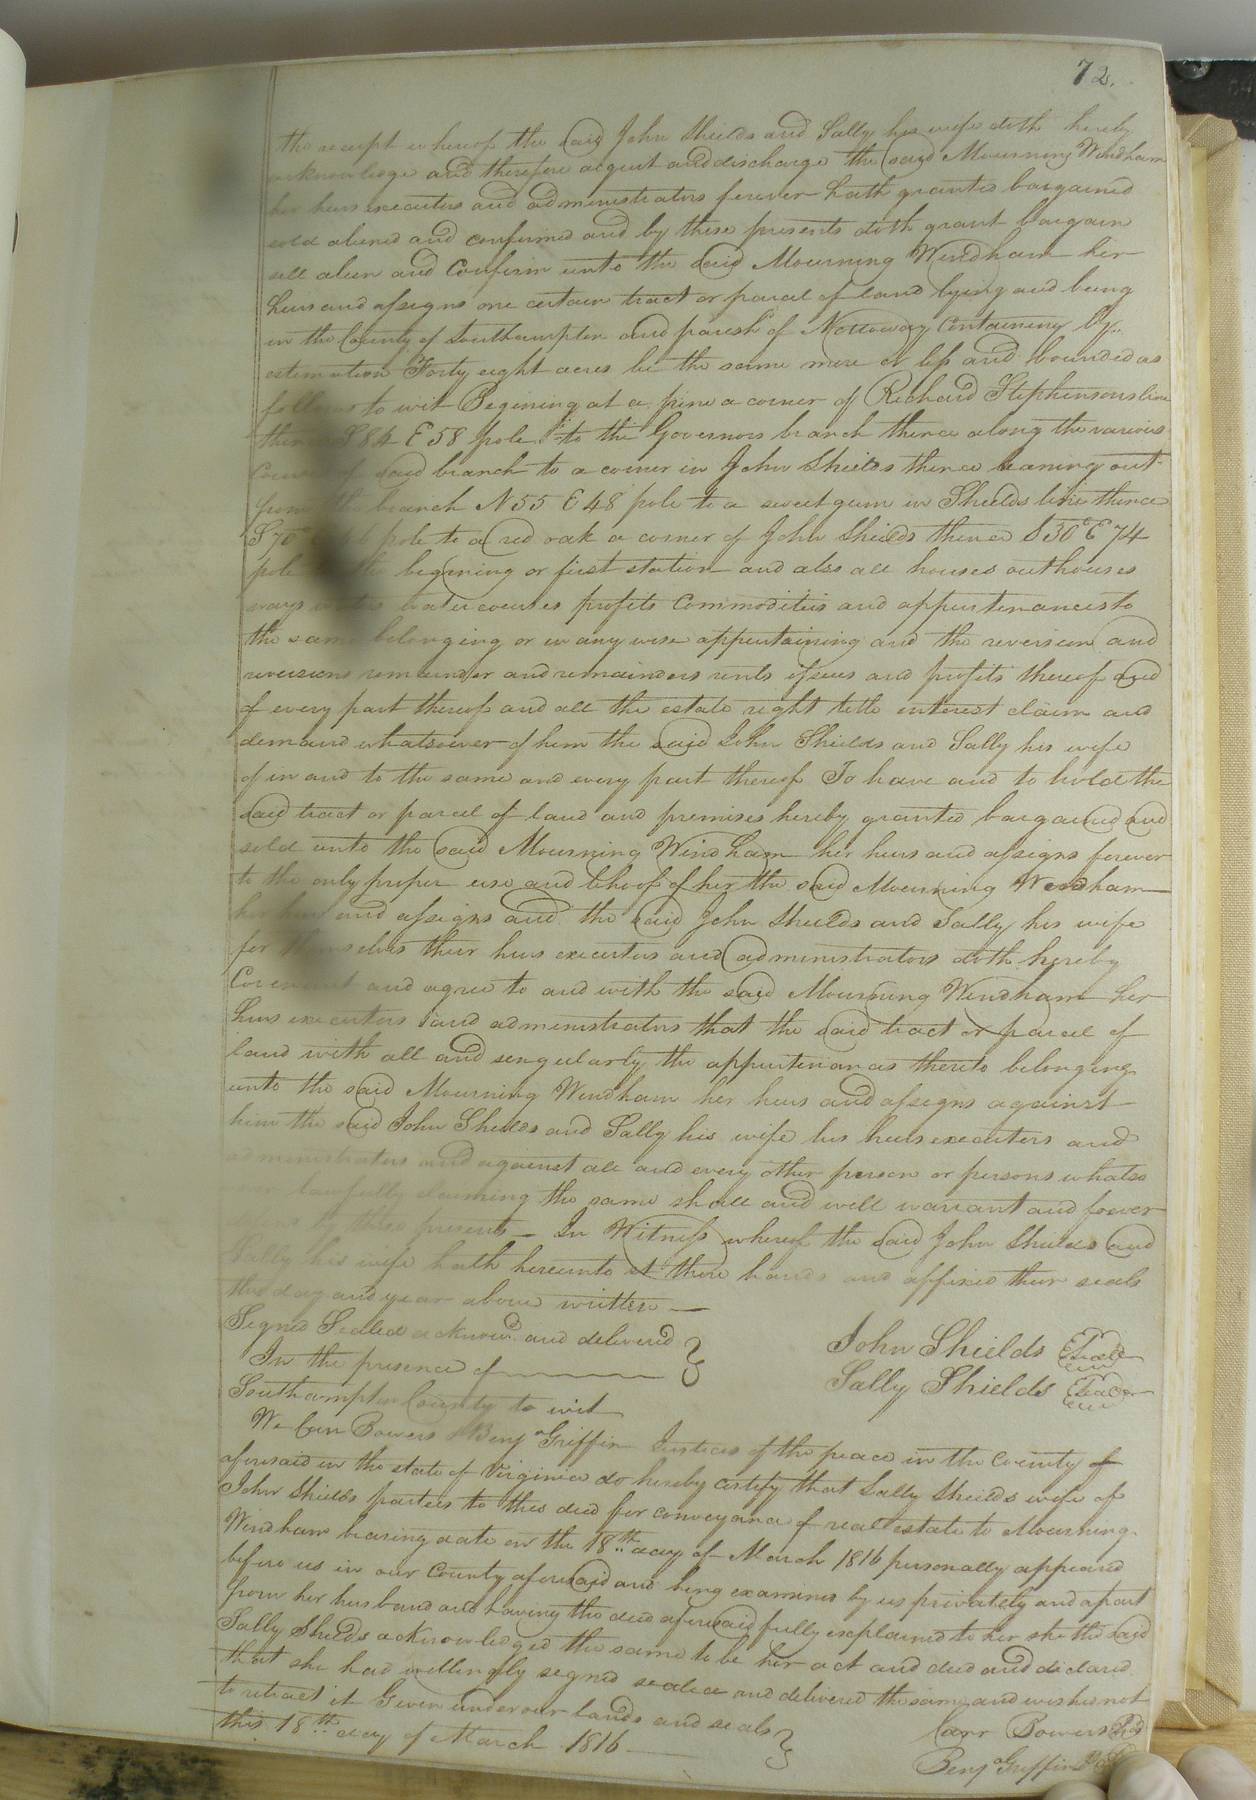 72.
the receipt whereof the said John Shields and Sally his wife doth hereby
acknowledge and therefore acquit and discharge the said Mourning Windham
her heirs executors and administrators forever hath granted bargained
sold aliened and confirmed and by these presents doth grant bargain
sell alien and Confirm unto the said Mourning Windham her
heirs and assigns one certain tract or parcel of land lying and being
in the County of Southampton and parish of Nottoway Containing by
estimation Forty eight acres be the same more or less and bounded as
follows to wit Begining at a pine a corner of Richard Stephensons line
thence S 84 E 58 pole to the Governors branch thence along the various
Courses of said branch to a corner in John Shields thence leaning out
from the branch N 55 E 48 pole to a sweet gum in Shields line thence
S 70 pole to a red oak a corner of John Shields thence S 30° E 74
pole to the begining or first station and also all houses outhouses
ways waters water courses profits Commodities and appurtenances to
the same belonging or in any wise appurtaining and the reversion and
reversions remainder and remainders rents issues and profits thereof and
of every part thereof and all the estate right title interest claim and
demand whatsoever of him the said John Shields and Sally his wife
of in and to the same and every part thereof To have and to hold the
said tract or parcel of land and premises hereby granted bargained and
sold unto the said Mourning Windham her heirs and assigns forever
to the only proper use and behoof of her the said Mourning Windham
her heirs and assigns and the said John Shields and Sally his wife
for themselves their heirs executors and administrators doth hereby
Covenant and agree to and with the said Mourning Windham her
heirs executors and administrators that the said tract or parcel of
land with all and singularly the appurtenances thereto belonging
unto the said Mourning Windham her heirs and assigns against
him the said John Shields and Sally his wife his heirs executors and
administrators and against all and every other person or persons whatso
ever lawfully claiming the same shall and will warrant and forever
by these presents — In Witness whereof the said John Shields and
Sally his wife hath hereunto set there hands and affixed their seals
the day and year above written —
Signed Sealed acknowd. and delivered
In the presence of
John Shields Seal
Sally Shields Seal
Southampton County to wit
We Carr Bowers & Benja Griffin Justices of the peace in the County of
aforesaid in the state of Virginia do hereby certify that Sally Shields wife of
John Shields parties to this deed for conveyance of real estate to Mourning
Windham bearing date on the 18th day of March 1816 personally appeared
before us in our County aforesaid and being examined by us privately and apart
from her husband and having the deed aforesaid fully explained to her she the said
Sally Shields acknowledged the same to be her act and deed and declared
that she had willingly signed sealed and delivered the same and wishes not
to retract it Given under our hands and seals
this 18th day of March 1816
Carr Bowers
Benja Griffin